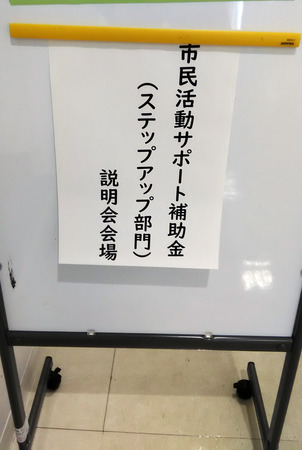 市民活動サポート補助金
（ステップアップ部門）
説明会会場